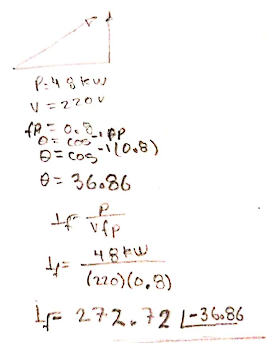 P=48kW
V=220V
fp=0.8
θ=cos⁻¹fp
θ=cos⁻¹(0.8)
θ=36.86
If=P/Vfp
If=48kW/(220)(0.8)
If=272.72∠-36.86